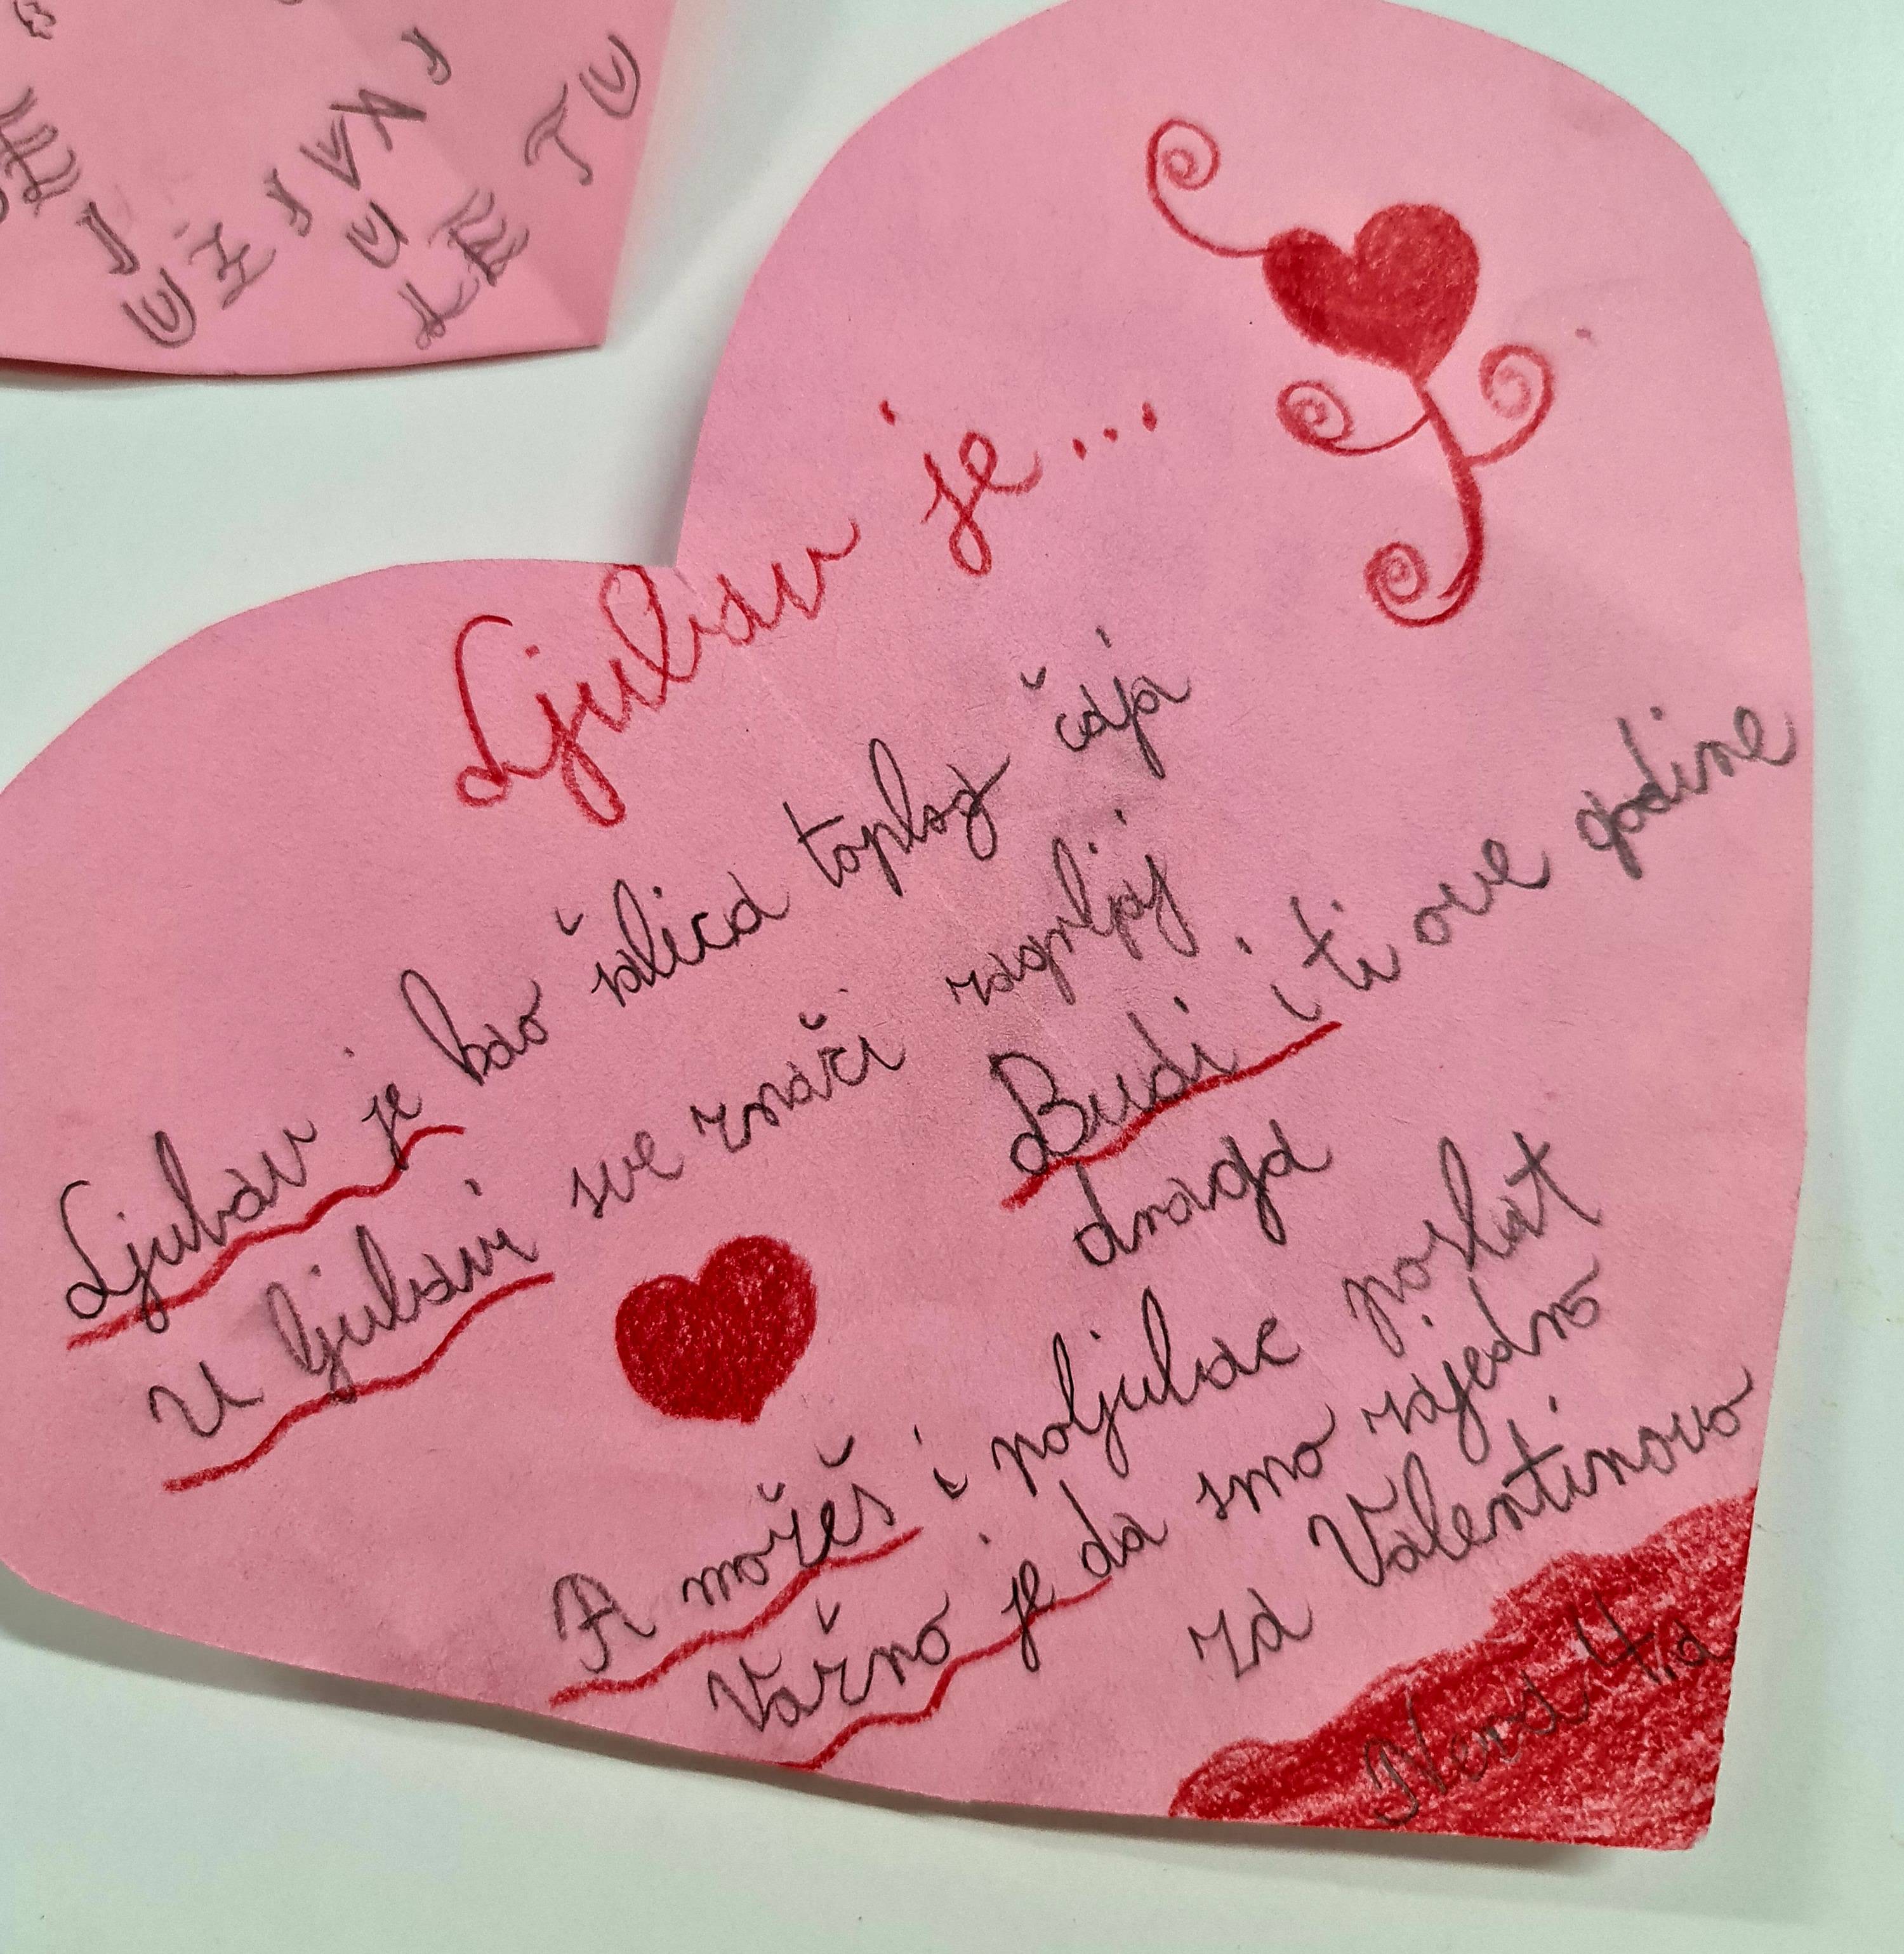 UŽIVAJ
U LE TU
Ljubav je...
Ljubav je kao šalica toplog čaja
U ljubavi sve znači zagrljaj
Budi i ti ove godine
draga
A možeš i poljubac poslat
Važno je da smo zajedno
za Valentinovo
4.a